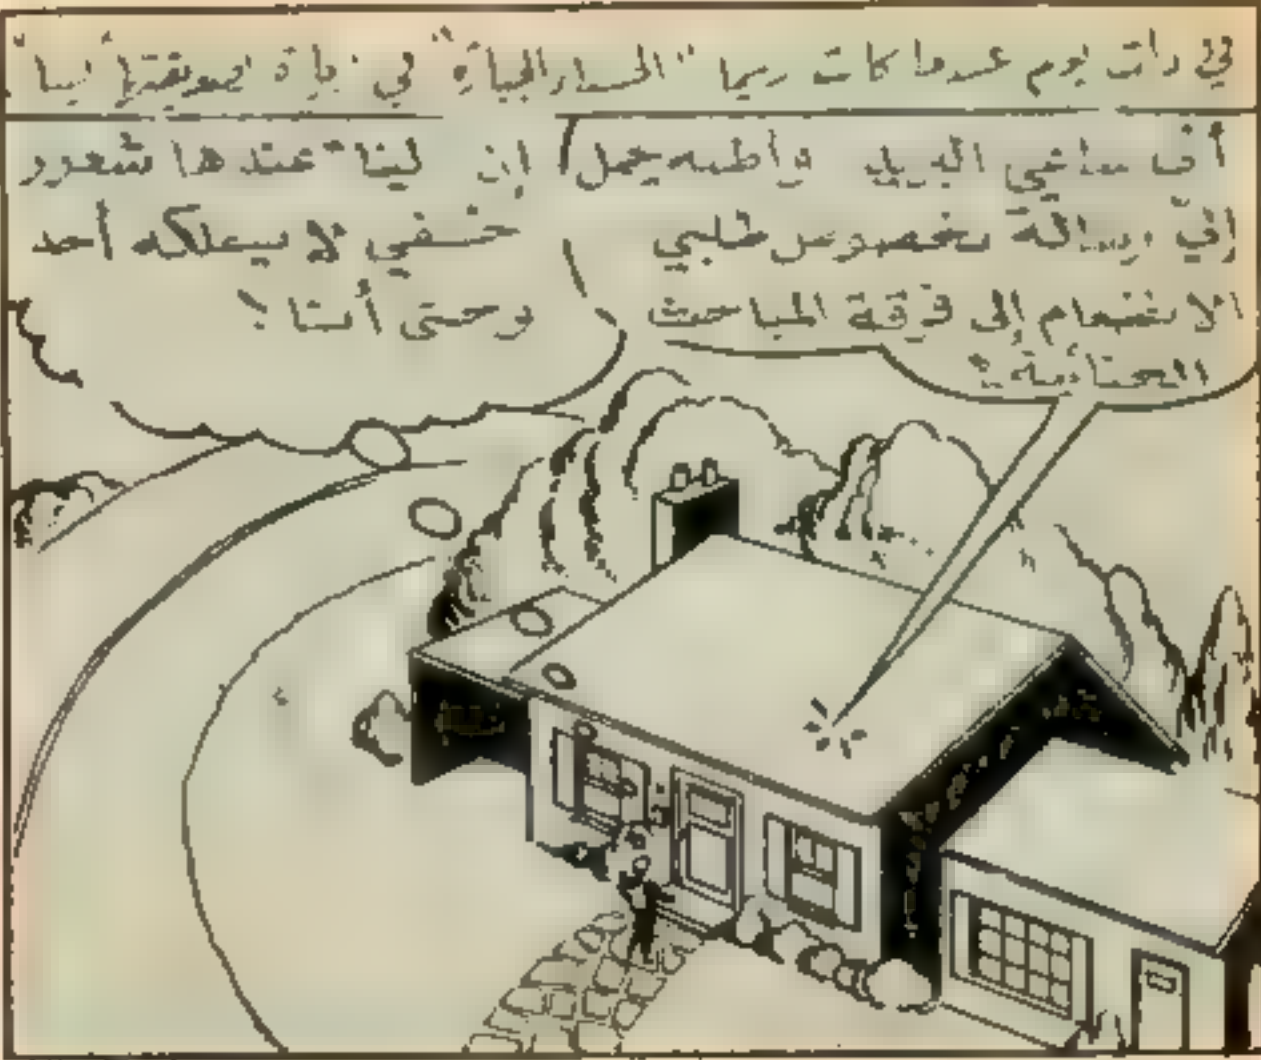 في ذات يوم عندما كانت ريما "الجبارة" في زيارة لصديقتها "لينا"
أتى ساعي البريد وأظنه يحمل
إليّ رسالة بخصوص طلبي
الانضمام إلى فرقة المباحث
إن لينا عندها شعور
خفي لا يملكه أحد
وحتى أنا !